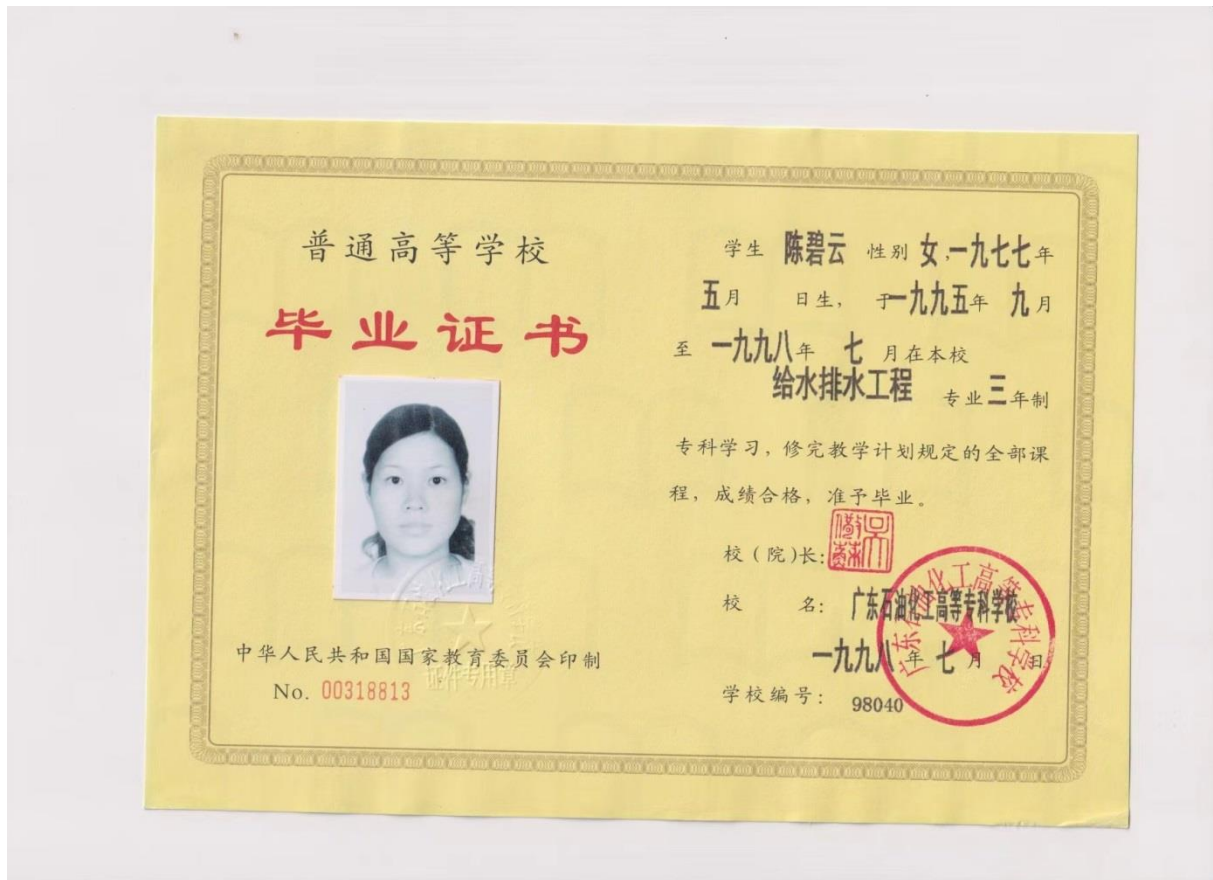 普通高等学校
毕业证书
中华人民共和国国家教育委员会印制
No. 00318813
证件专用章
学生 陈碧云 性别 女,一九七七年
五月 日生, 于一九九五年 九月
至 一九九八年 七 月在本校
给水排水工程 专业三年制
专科学习, 修完教学计划规定的全部课
程, 成绩合格, 准予毕业。
校(院)长:
校 名: 广东石油化工高等专科学校
一九九八年 七月 日
学校编号: 98040
广东石油化工高等专科学校